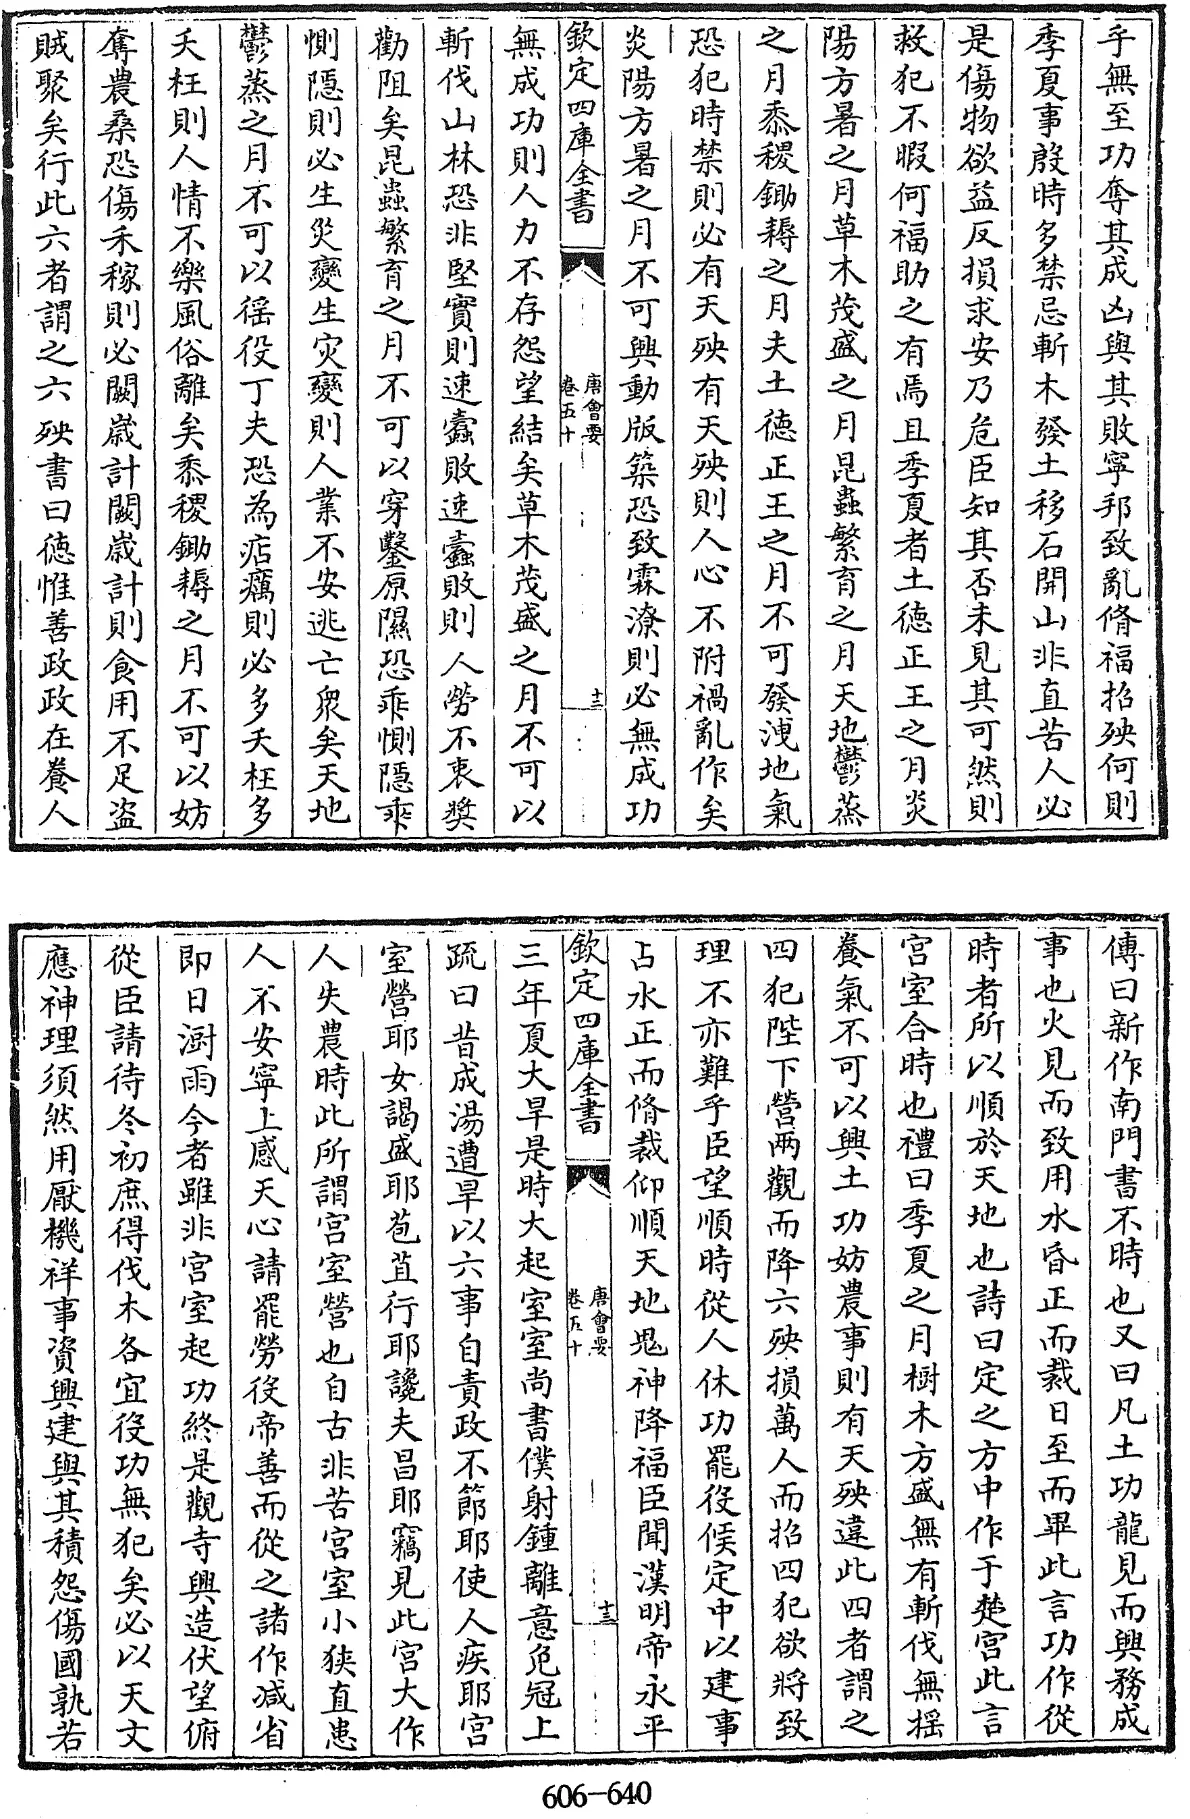 乎無至功奪其成凶與其敗寧邦致亂脩福招殃何則
季夏事殷時多禁忌斬木發土移石開山非直苦人必
是傷物欲益反損求安乃危臣知其否未見其可然則
救犯不暇何福助之有焉且季夏者土徳正王之月炎
陽方暑之月草木茂盛之月昆蟲繁育之月天地鬱蒸
之月黍稷鋤耨之月夫土徳正王之月不可發洩地氣
恐犯時禁則必有天殃有天殃則人心不附禍亂作矣
炎陽方暑之月不可興動版築恐致霖潦則必無成功
欽定四庫全書
唐會要
卷五十
十二
無成功則人力不存怨望結矣草木茂盛之月不可以
斬伐山林恐非堅實則速蠹敗速蠹敗則人勞不衷奬
勸阻矣昆蟲繁育之月不可以穿鑿原隰恐乖惻隠乖
惻隠則必生災變生災變則人業不安逃亡衆矣天地
鬱蒸之月不可以徭役丁夫恐為店癘則必多夭枉多
夭枉則人情不樂風俗離矣黍稷鋤耨之月不可以妨
奪農桑恐傷禾稼則必闕歲計闕歲計則食用不足盗
賊聚矣行此六者謂之六殃書曰徳惟善政政在養人
傳曰新作南門書不時也又曰凡土功龍見而興務成
事也火見而致用水昏正而裁日至而畢此言功作從
時者所以順於天地也詩曰定之方中作于楚宫此言
宫室合時也禮曰季夏之月樹木方盛無有斬伐無揺
養氣不可以興土功妨農事則有天殃違此四者謂之
四犯陛下營兩觀而降六殃損萬人而招四犯欲將致
理不亦難乎臣望順時從人休功罷役候定中以建事
占水正而脩裁仰順天地鬼神降福臣聞漢明帝永平
欽定四庫全書
唐會要
卷五十
十三
三年夏大旱是時大起室室尚書僕射鍾離意免冠上
疏曰昔成湯遭旱以六事自責政不節耶使人疾耶宫
室營耶女謁盛耶苞苴行耶讒夫昌耶竊見此宫大作
人失農時此所謂宫室營也自古非苦宫室小狹直患
人不安寧上感天心請罷勞役帝善而從之諸作減省
即日澍雨今者雖非宫室起功終是觀寺興造伏望俯
從臣請待冬初庶得伐木各宜役功無犯矣必以天文
應神理須然用厭機祥事資興建與其積怨傷國孰若
606-640